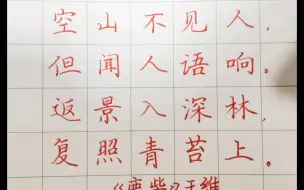 空山不见人，
但闻人语响。
返景入深林，
复照青苔上。
《鹿柴》王维